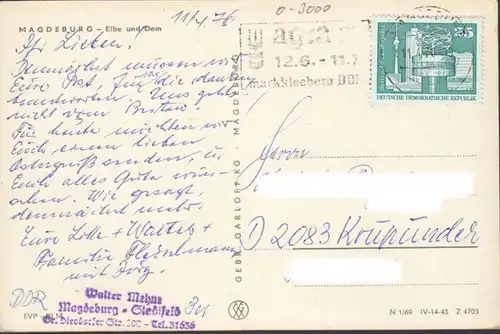 MAGDEBURG – Elbe und Dom
11/4 76
0-3000
Ihr Lieben,
Demnächst müssen wir
Eure Post, für die danken
beantworten. Uns geht es
nicht vom
Für heute möchten wir
Euch einen lieben
Ostergruß senden, u.
Euch alles Gute wün-
schen. Wie gesagt,
demnächst mehr.
Eure Lotte + Walter +
Familie
mit Jörg.
DDR
EVP
Walter Mehne
Magdeburg - Stadtfeld
Gr. Diesdorfer Str. 200 - Tel. 31636
GEBR. GARLOFF KG · MAGDEBURG
agra
12.6.-11.7
markkleeberg DDR
25
DEUTSCHE DEMOKRATISCHE REPUBLIK
Herrn
D 2083 Krupunder
N 1/69 IV-14-45 Z 4703